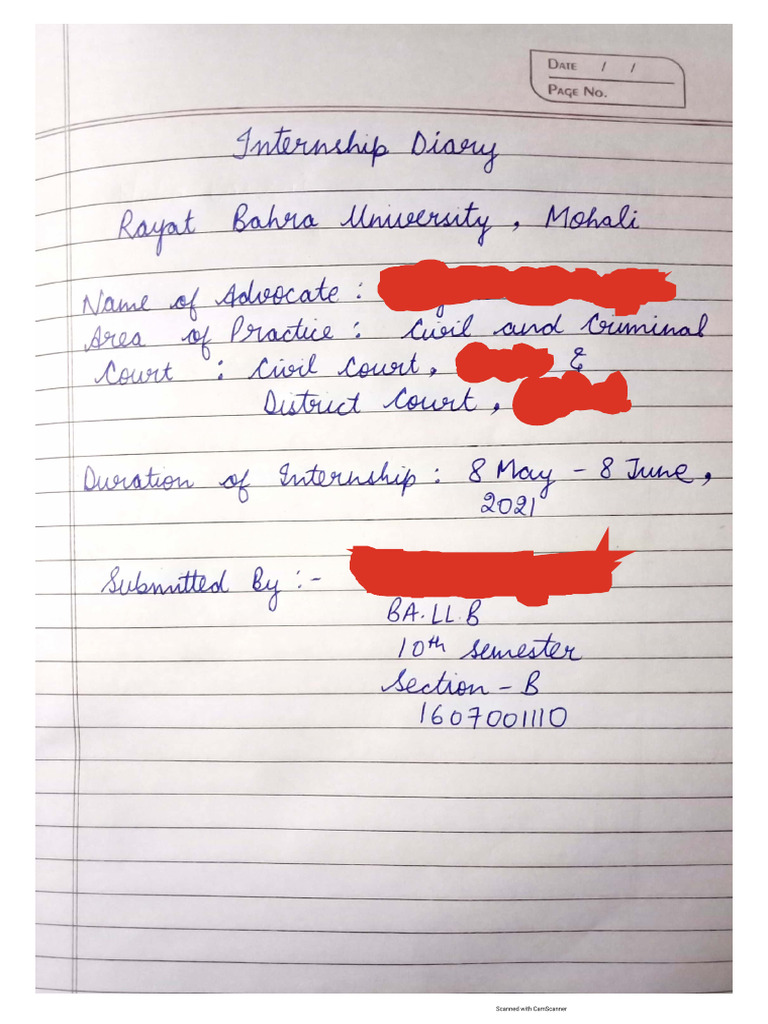 DATE / /
PAGE NO.
Internship Diary
Rayat Bahra University, Mohali
Name of Advocate :
Area of Practice : Civil and Criminal
Court : Civil Court, &
District Court,
Duration of Internship : 8 May - 8 June,
2021
Submitted By :-
BA.LL.B
10th semester
Section - B
1607001110
Scanned with CamScanner